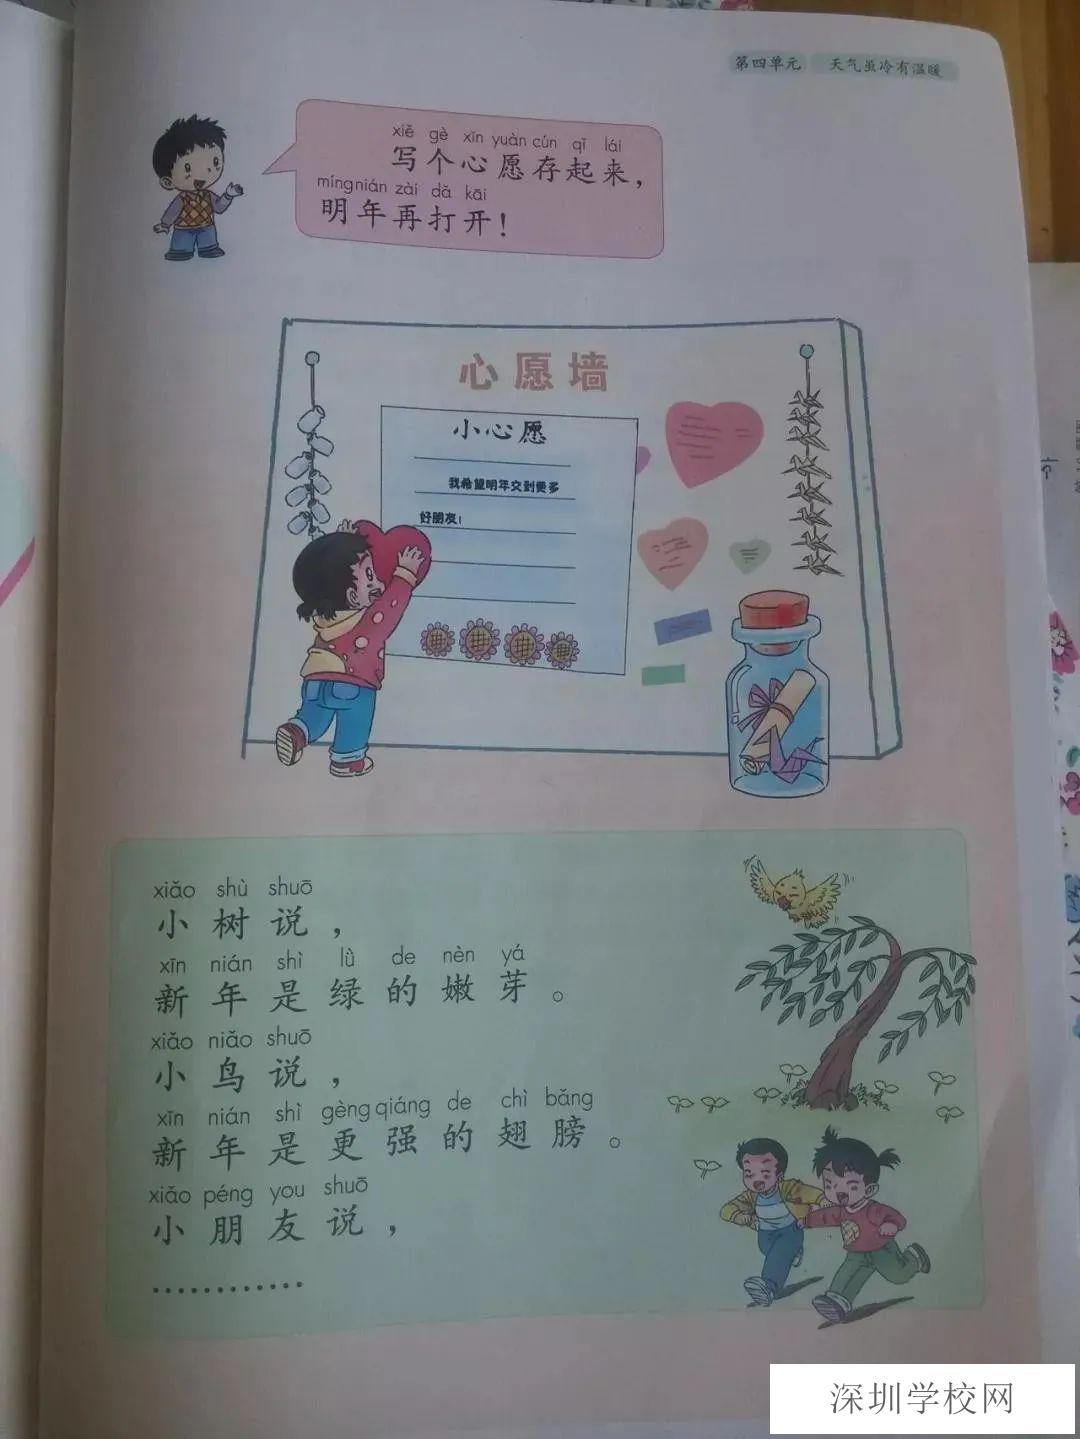 第四单元 天气虽冷有温暖
xiě gè xīn yuàn cún qǐ lái
写个心愿存起来，
míng nián zài dǎ kāi
明年再打开！
心愿墙
小心愿
我希望明年交到更多
好朋友！
xiǎo shù shuō
小树说，
xīn nián shì lǜ de nèn yá
新年是绿的嫩芽。
xiǎo niǎo shuō
小鸟说，
xīn nián shì gèng qiáng de chì bǎng
新年是更强的翅膀。
xiǎo péng you shuō
小朋友说，
…………
深圳学校网